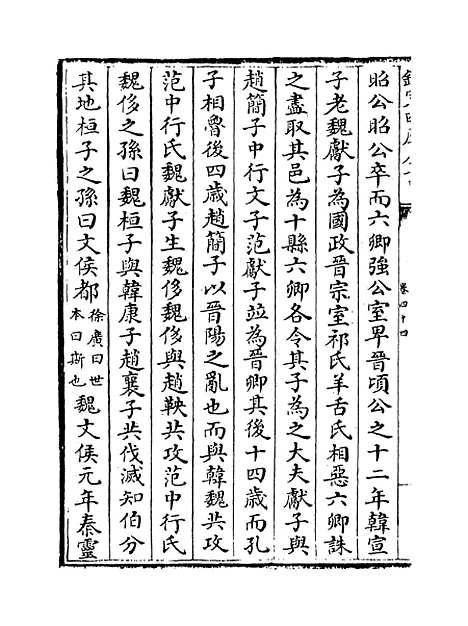 欽定四庫全書
卷四十四
昭公昭公卒而六卿強公室卑晉頃公之十二年韓宣
子老魏獻子為國政晉宗室祁氏羊舌氏相惡六卿誅
之盡取其邑為十縣六卿各令其子為之大夫獻子與
趙簡子中行文子范獻子並為晉卿其後十四歲而孔
子相魯後四歲趙簡子以晉陽之亂也而與韓魏共攻
范中行氏魏獻子生魏侈魏侈與趙鞅共攻范中行氏
魏侈之孫曰魏桓子與韓康子趙襄子共伐滅知伯分
其地桓子之孫曰文侯都徐廣曰世本曰斯也魏文侯元年秦靈